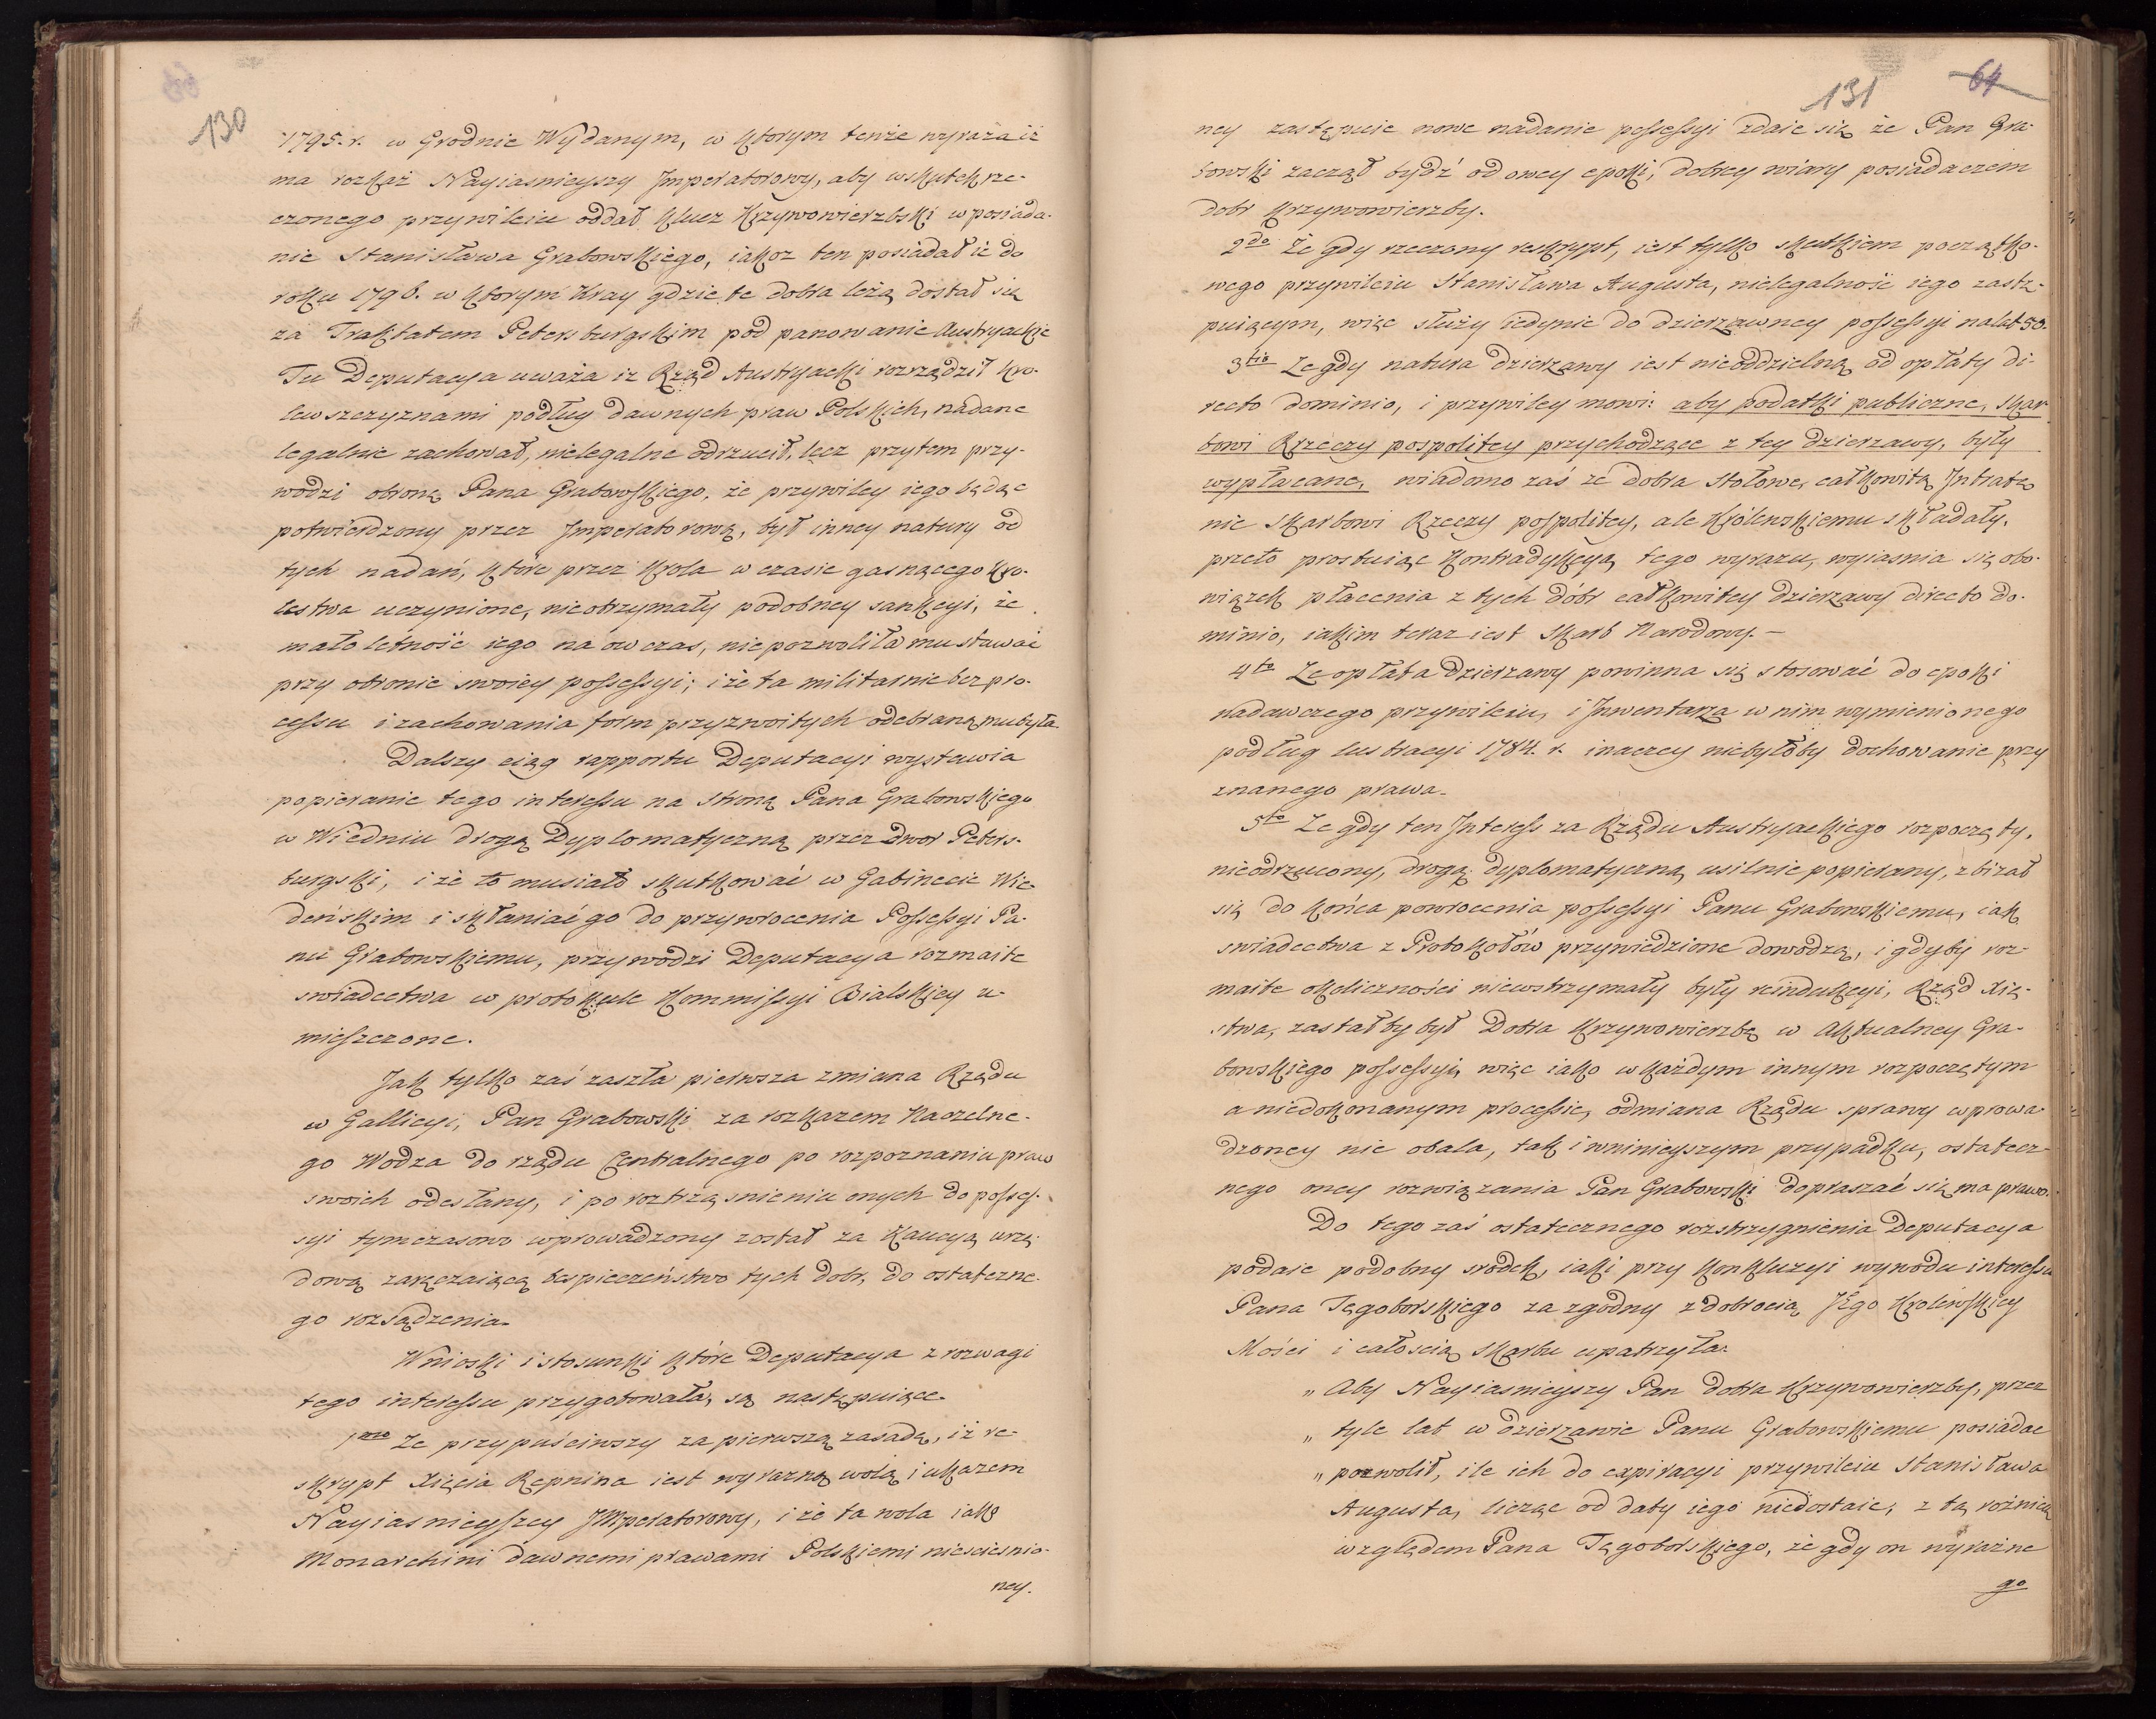 130
1795. r. w Grodnie Wydanym, w którym tenże wyraża iż
ma rozkaż Nayiasnieyszy Imperatorowy, aby wskutek rze-
czonego przywileiu oddał klucz Krzywowierzbski w posiada-
nie Stanisława Grabowskiego, iakoz ten posiadał ie do
roku 1796. w ktorym Kray gdzie te dobra leżą dostał się
za Traktatem Petersburgskim pod panowanie Austryackie
Tu Deputacya uważa iz Rząd Austryacki rozrządził Kro-
lewszczyznami podług dawnych praw Polskich, nadane
legalnie zachował, nielegalne odrzucił, lecz przytem przy-
wodzi obronę Pana Grabowskiego, że przywiley iego będąc
potwierdzony przez Imperatorową, był inney natury od
tych nadań, które przez Krola w czasie gasnącego Kro-
lestwa uczynione, nieotrzymały podobney sankcyi, że
małoletność iego na ow czas, niepozwoliła mu stawać
przy obronie swoiey possessyi; i że ta militarnie bez pro-
cessu i zachowania form przyzwoitych odebraną mu była.
Dalszy ciąg rapportu Deputacyi wystawia
popieranie tego interessu na stronę Pana Grabowskiego
w Wiedniu drogą Dyplomatyczną przez dwor Peters-
burgski, i że to musiało skutkować w Gabinecie Wie-
deńskim i skłaniać go do przywrocenia Possessyi Pa-
nu Grabowskiemu, przywodzi Deputacya rozmaite
swiadectwa w protokule Kommissyi Bialskiey u-
mieszczone.
Jak tylko zaś zaszła pierwsza zmiana Rządu
w Gallicyi, Pan Grabowski za rozkazem Naczelne-
go Wodza do rządu Centralnego po rozpoznaniu praw
swoich odesłany, i po roztrząsnieniu onych do posses-
syi tymczasowo wprowadzony został za Kaucyą urzę-
dową zaręczaiącą bespieczeństwo tych dobr, do ostateczne-
go rozsądzenia.
Wnioski i stosunki które Deputacya z rozwagi
tego interessu przygotowała, są następuiące.
1mo Ze przypuściwszy za pierwszą zasadę, iż re-
skrypt Xięcia Repnina iest wyrazną wolą i ukazem
Nayiasnieyszey Imperatorowy, i że ta wola iako
Monarchini dawnemi prawami Polskiemi niescieśnio-
ney.
131
64
ney zastępuie nowe nadanie possessyi zdaie się że Pan Gra-
bowski zaczął bydź od owey epoki, dobrey wiary posiadaczem
dobr Krzywowierzby.
2do Że gdy rzeczony reskrypt, iest tylko skutkiem początko-
wego przywileiu Stanisława Augusta, nielegalność iego zastę-
puiącym, więc służy iedynie do dzierzawney possessyi na lat 50.
3tio Ze gdy natura dzierzawy iest nieoddzielną od opłaty di-
recto dominio, i przywiley mowi: aby podatki publiczne, skar-
bowi Rzeczy pospolitey przychodzące z tey dzierzawy, były
wypłacane, wiadomo zaś ze dobra Stołowe, całkowitą Intratę
nie Skarbowi Rzeczy pospolitey, ale Królewskiemu składały,
przeto prostuiąc kontradykcyą tego wyrazu, wyiasnia się obo-
wiązek płacenia z tych dóbr całkowitey dzierzawy directo do-
minio, iakim teraz iest Skarb Narodowy. —
4to Ze opłata dzierzawy powinna się stosować do epoki
nadawczego przywileiu, i Inwentarza w nim wymienionego
podług lustracyi 1784. r. inaczey niebyłoby dochowanie przy
znanego prawa.
5to Ze gdy ten Interess za Rządu Austryackiego rozpoczęty,
nieodrzucony, drogą dyplomatyczną usilnie popierany, zbizał
się do końca powrocenia possessyi Panu Grabowskiemu, iak
swiadectwa z Protokołów przywiedzione dowodzą, i gdyby roz-
maite okoliczności niewstrzymały były reindukcyi, Rząd Xię-
stwa, zastałby był Dobra Krzywowierzbę w Aktualney Gra-
bowskiego possessyi, więc iako w każdym innym rozpoczętym
a niedokonanym processie, odmiana Rządu sprawy wprowa-
dzoney nie obala, tak i w ninieyszym przypadku, ostatecz-
nego oney rozwiązania Pan Grabowski dopraszać się ma prawo.
Do tego zaś ostatecznego rozstrzygnienia Deputacya
podaie podobny srodek, iaki przy konkluzyi wywodu interessu
Pana Tęgoborskiego za zgodny z dobrocią JEgo Krolewskiey
Mości i całością Skarbu upatrzyła.
„ Aby Nayiasnieyszy Pan dobra Krzywowierzby, przez
„ tyle lat w dzierzawie Panu Grabowskiemu posiadać
„ pozwolił, ile ich do expiracyi przywileiu Stanisława
Augusta, licząc od daty iego niedostaie, z tą rożnicą
względem Pana Tęgoborskiego, że gdy on wyraźne
go